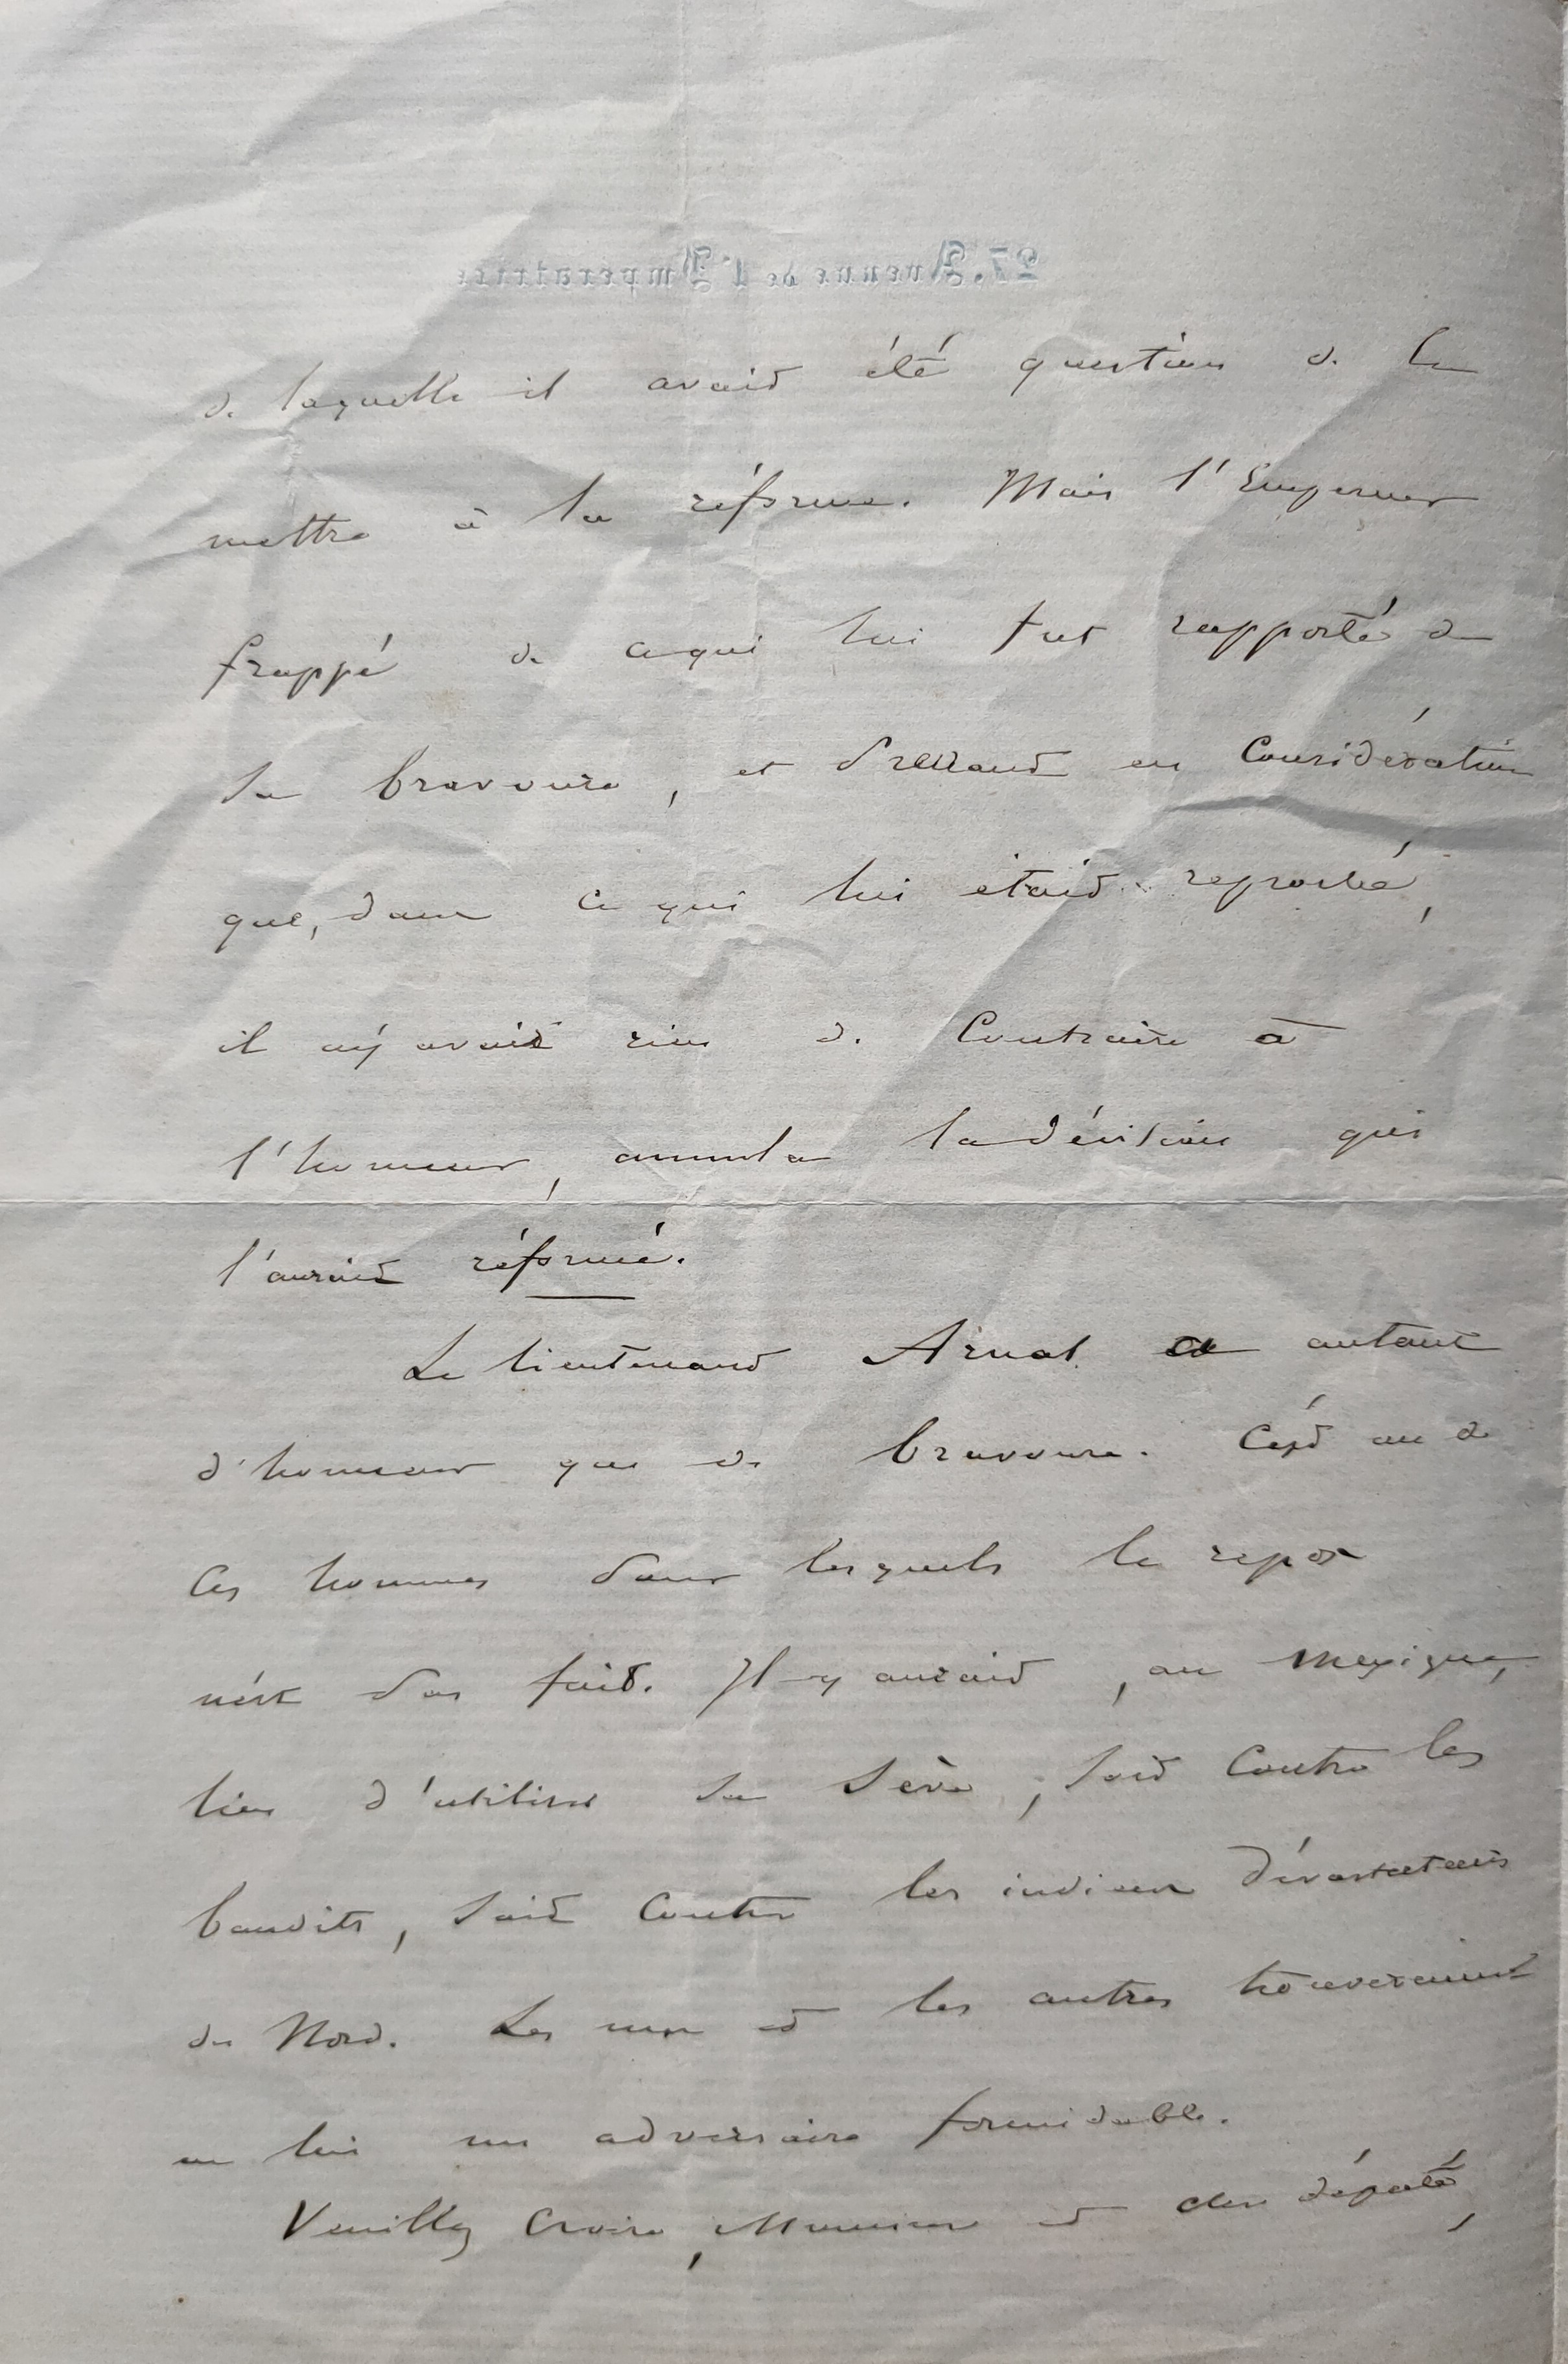 27. Avenue de l'Impératrice
de laquelle il avait été question de le
mettre à la réforme. Mais l'Empereur
frappé de ce qui lui fut rapporté de
sa bravoure, et prenant en considération
que, dans ce qui lui était reproché,
il n'y avait rien de contraire à
l'honneur, annula la décision qui
l'aurait réformé.
Le lieutenant Arnal a autant
d'honneur que de bravoure. C'est un de
ces hommes pour lesquels le repos
n'est pas fait. Il y aurait, au Mexique,
lieu d'utiliser sa sève, soit contre les
bandits, soit contre les indiens dévastateurs
du Nord. Les uns et les autres trouveraient
en lui un adversaire formidable.
Veuillez croire, Monsieur et cher député,